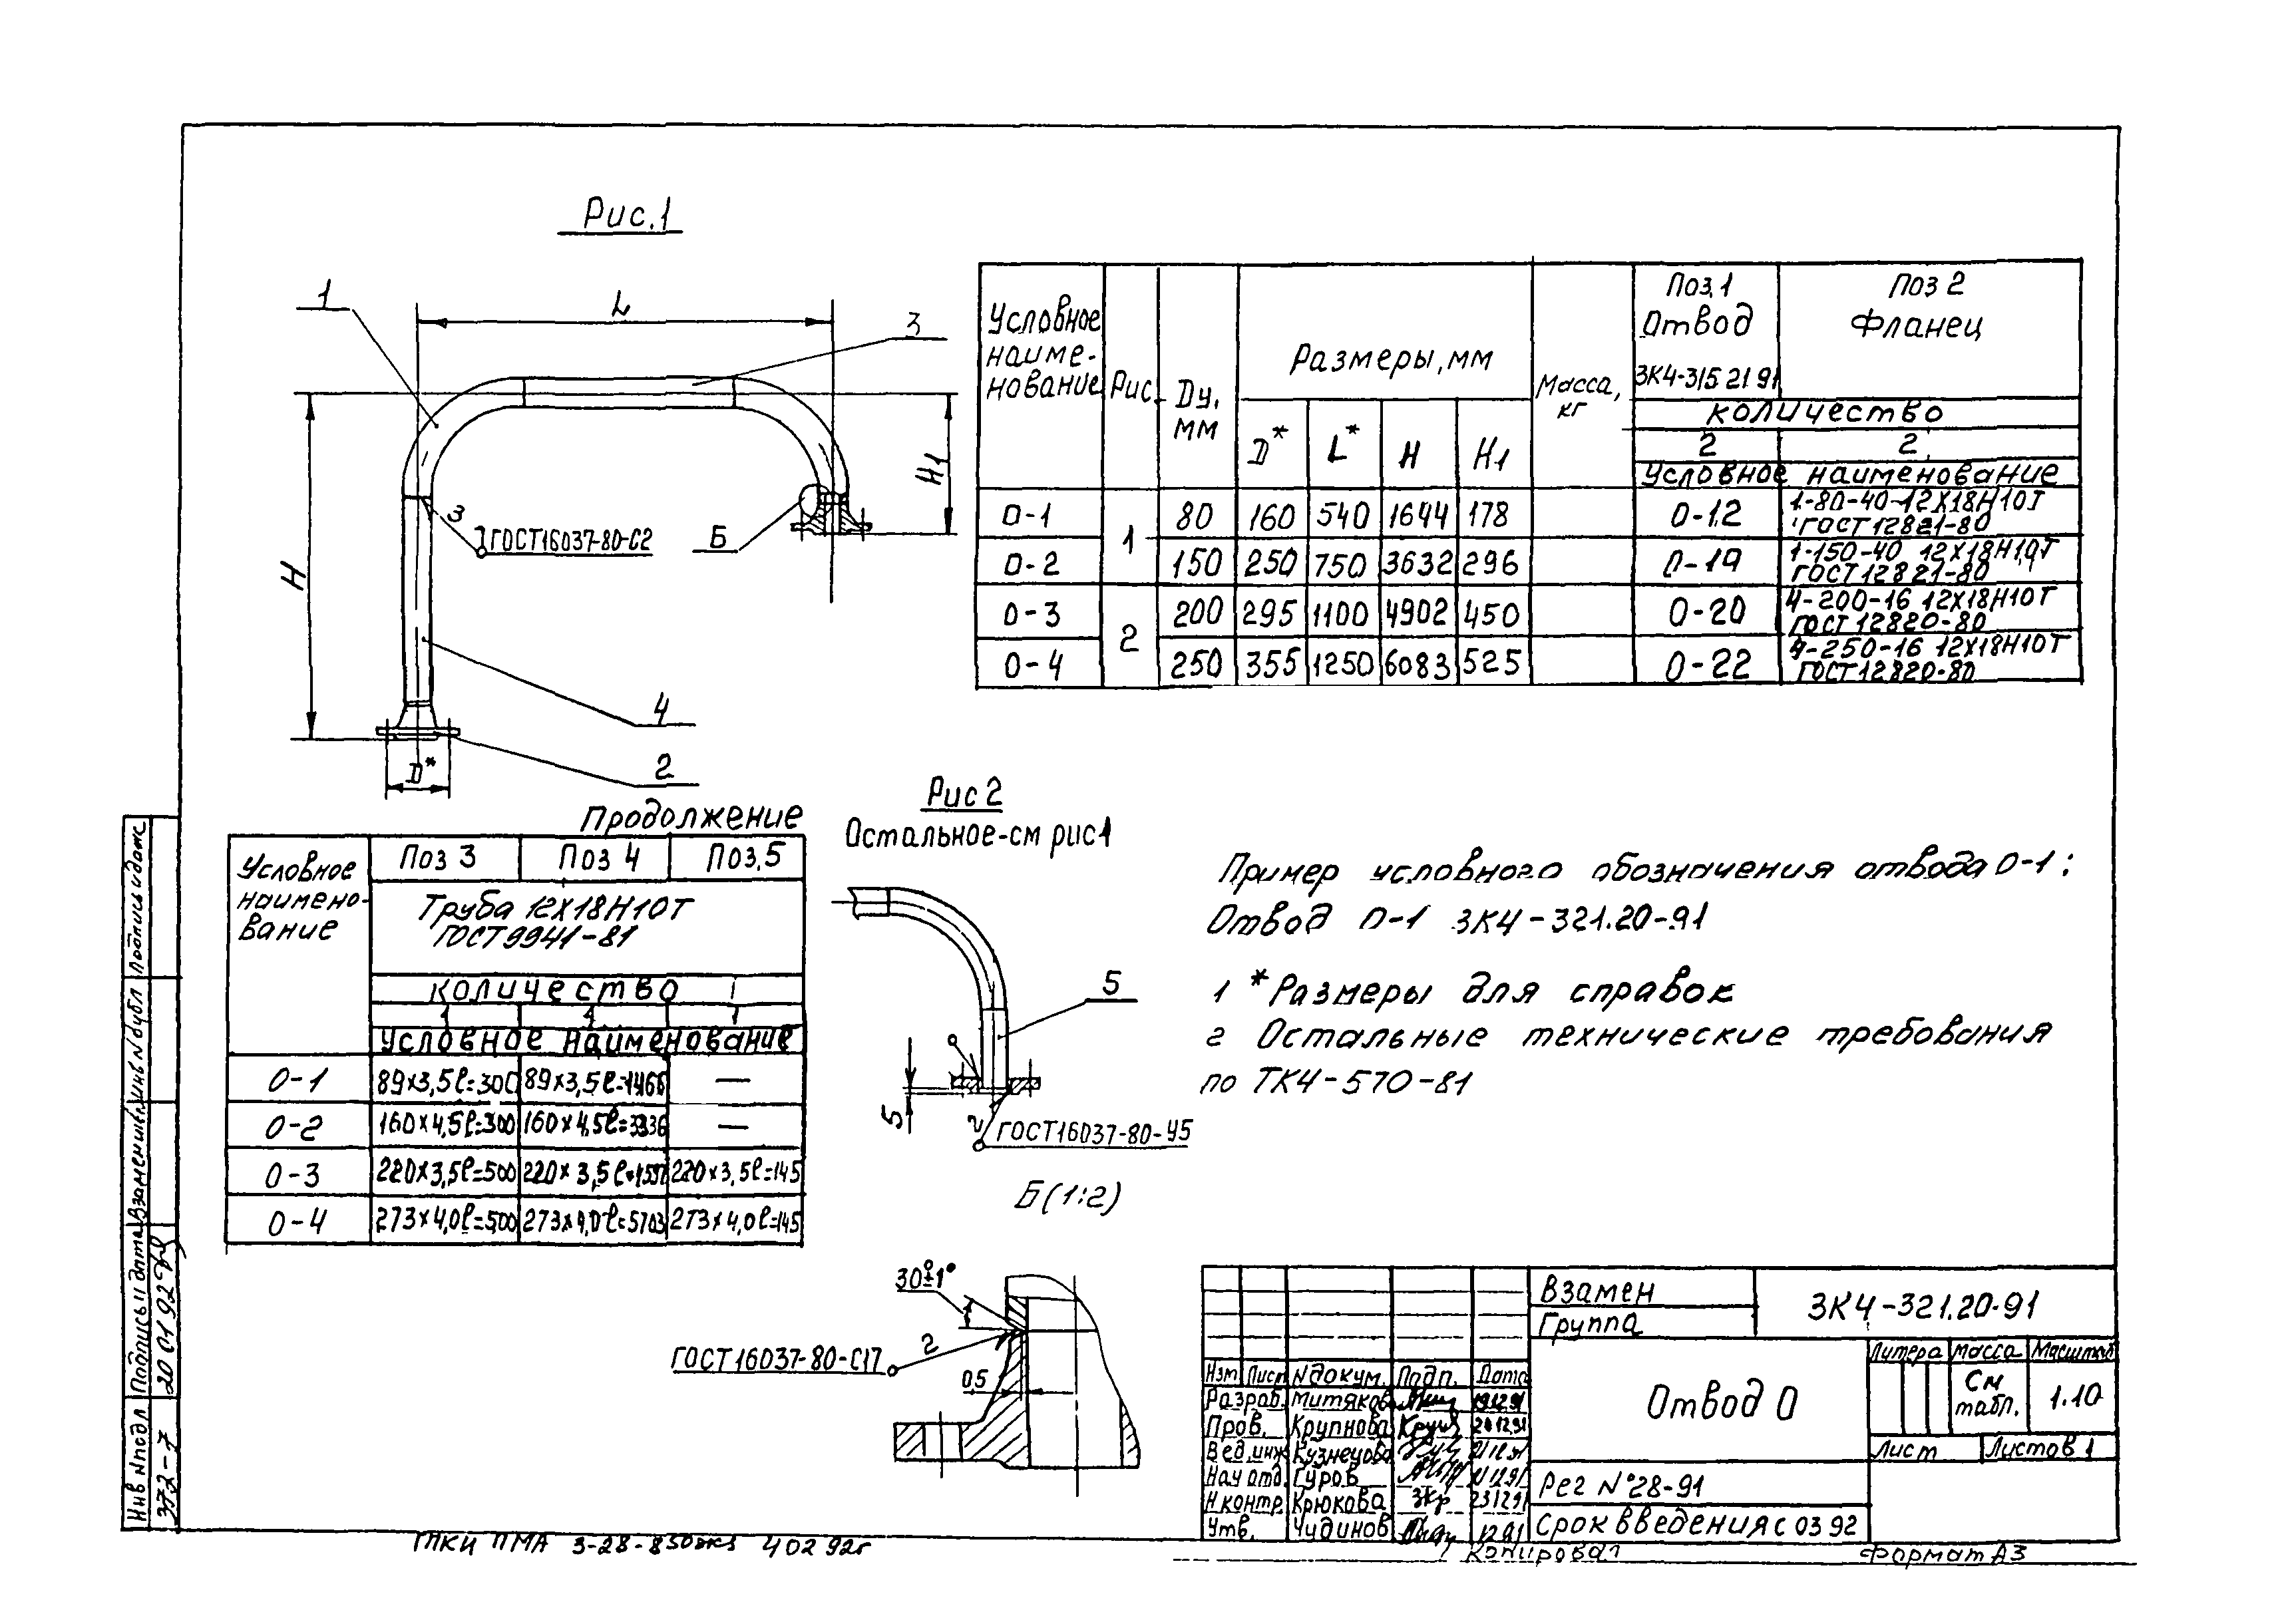 Рис.1
1
L
3
3
ГОСТ16037-80-С2
Б
H
H1
4
2
D*
Условное наиме-нование
Рис.
Dу, мм
Размеры, мм
D* L* H H1
Масса, кг
Поз.1 Отвод ЗК4-315 21 91
Поз 2 Фланец
количество
2 2
Условное наименование
О-1 1 80 160 540 1644 178 О-12 1-80-40-12Х18Н10Т ГОСТ 12821-80
О-2 150 250 750 3632 296 О-19 1-150-40 12Х18Н10Т ГОСТ 12821-80
О-3 2 200 295 1100 4902 450 О-20 4-200-16 12Х18Н10Т ГОСТ 12820-80
О-4 250 355 1250 6083 525 О-22 4-250-16 12Х18Н10Т ГОСТ 12820-80
Продолжение
Условное наимено-вание
Поз 3 Поз 4 Поз.5
Труба 12Х18Н10Т
ГОСТ 9941-81
количество
1 1 1
Условное наименование
О-1 89×3,5ℓ=300 89×3,5ℓ=1466 —
О-2 160×4,5ℓ=300 160×4,5ℓ=3336 —
О-3 220×3,5ℓ=500 220×3,5 220×3,5ℓ=145
О-4 273×4,0ℓ=500 273×4,0ℓ=5703 273×4,0ℓ=145
Рис 2
Остальное-см рис1
5
5
2
ГОСТ16037-80-У5
Б(1:2)
30°±1°
2
ГОСТ16037-80-С17
0,5
Пример условного обозначения отвода О-1:
Отвод О-1 ЗК4-321.20-91
1 *Размеры для справок
2 Остальные технические требования
по ТК4-570-81
Взамен
Группа
ЗК4-321.20-91
Литера Масса Масштаб
Отвод О
См табл.
1.10
Лист Листов 1
Изм Лист N докум. Подп. Дата
Разраб. Митяков 19.12.91
Пров. Крупнова 20.12.91
Вед.инж Кузнецова
Нач отд. Гуров
Н контр. Крюкова 23.12.91
Утв. Чудинов 12.91
Рег N°28-91
Срок введения с 03 92
Копировал
Формат А3
ГПКИ ПМА 3-28-850экз 4 02 92г
Инв N подл Подпись и дата Взамен инв. Инв N дубл Подпись и дата
372-7 20 01 92